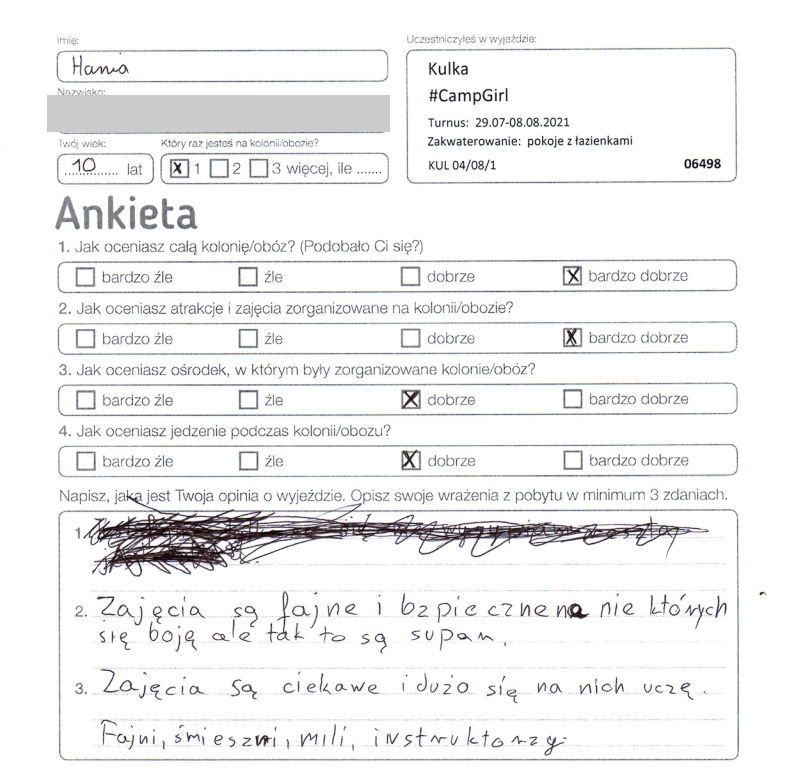 Imię:
Hania
Nazwisko:
Twój wiek:
10 lat
Który raz jesteś na kolonii/obozie?
X 1 2 3 więcej, ile .......
Uczestniczyłeś w wyjeździe:
Kulka
#CampGirl
Turnus: 29.07-08.08.2021
Zakwaterowanie: pokoje z łazienkami
KUL 04/08/1 06498
Ankieta
1. Jak oceniasz całą kolonię/obóz? (Podobało Ci się?)
bardzo źle źle dobrze X bardzo dobrze
2. Jak oceniasz atrakcje i zajęcia zorganizowane na kolonii/obozie?
bardzo źle źle dobrze X bardzo dobrze
3. Jak oceniasz ośrodek, w którym były zorganizowane kolonie/obóz?
bardzo źle źle X dobrze bardzo dobrze
4. Jak oceniasz jedzenie podczas kolonii/obozu?
bardzo źle źle X dobrze bardzo dobrze
Napisz, jaka jest Twoja opinia o wyjeździe. Opisz swoje wrażenia z pobytu w minimum 3 zdaniach.
1.
2. Zajęcia są fajne i bzpiecznena nie których
się boję ale tak to są supan.
3. Zajęcia są ciekawe i dużo się na nich uczę.
Fajni, śmieszni, mili, instruktorzy.